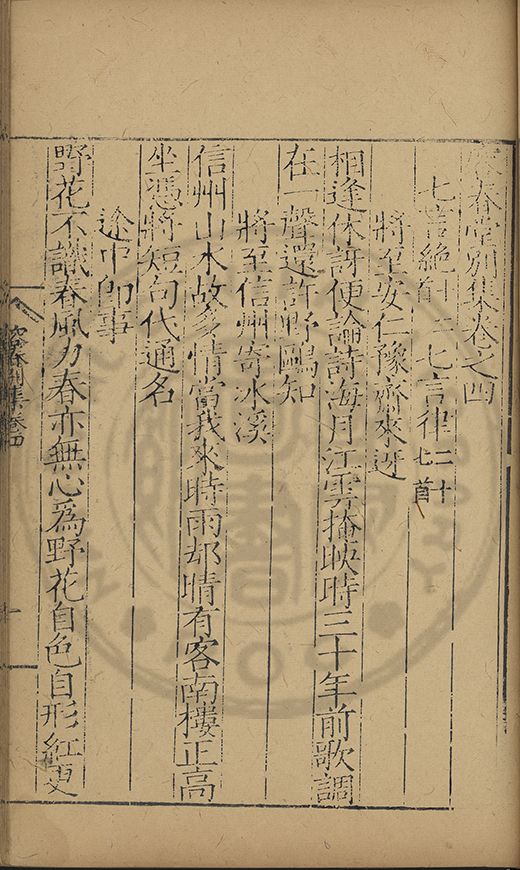 容春堂別集卷之四
七言絕十二首 七言律二十七首
將至安仁豫齋來迓
相逢休訝便論詩海月江雲掩映時三十年前歌調
在一聲還許野鷗知
將至信州寄冰溪
信州山水故多情當我來時雨却晴有客南樓正高
坐憑將短句代通名
途中即事
野花不識春風力春亦無心爲野花自色自形紅更
容春別集卷四